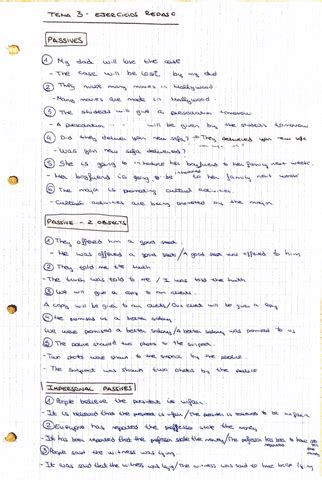 TEMA 3 - EJERCICIOS REPASO
PASSIVES
① My dad will lose the case
- The case will be lost by my dad
② They make many movies in Hollywood
- Many movies are made in Hollywood.
③ The students will give a presentation tomorrow
- A presentation will be given by the students tomorrow
④ Did they deliver your new sofa? → They delivered your new sofa
- Was your new sofa delivered?
⑤ She is going to introduce her boyfriend to her family next week.
- Her boyfriend is going to be introduced to her family next week
⑥ The major is promoting cultural activities
- Cultural activities are being promoted by the major
PASSIVE - 2 OBJECTS
① They offered him a good seat
- He was offered a good seat / A good seat was offered to him
② They told me the truth
- The truth was told to me / I was told the truth
③ We will give a copy to our clients.
A copy will be given to our clients / Our clients will be given a copy
④ He promised us a better salary
We were promised a better salary / A better salary was promised to us
⑤ The police showed two photos to the suspect.
- Two photos were shown to the suspect by the police
- The suspect was shown two photos by the police
IMPERSONAL PASSIVES
① People believe the president is unfair.
- It is believed that the president is unfair / The president is believed to be unfair
② Everyone has reported the professor stole the money
- It has been reported that the professor stole the money / The professor has been to have
③ People said the witness was lying.
- It was said that the witness was lying / The witness was said to have been lying